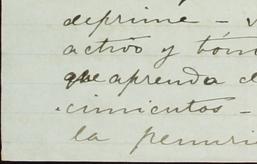 deprime - v
activo y tóni
que aprenda d
cimientos -
la penuri